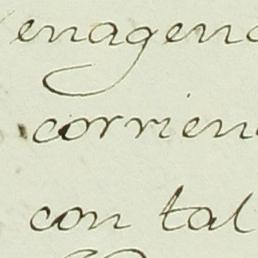 enagena
corrien
con tal